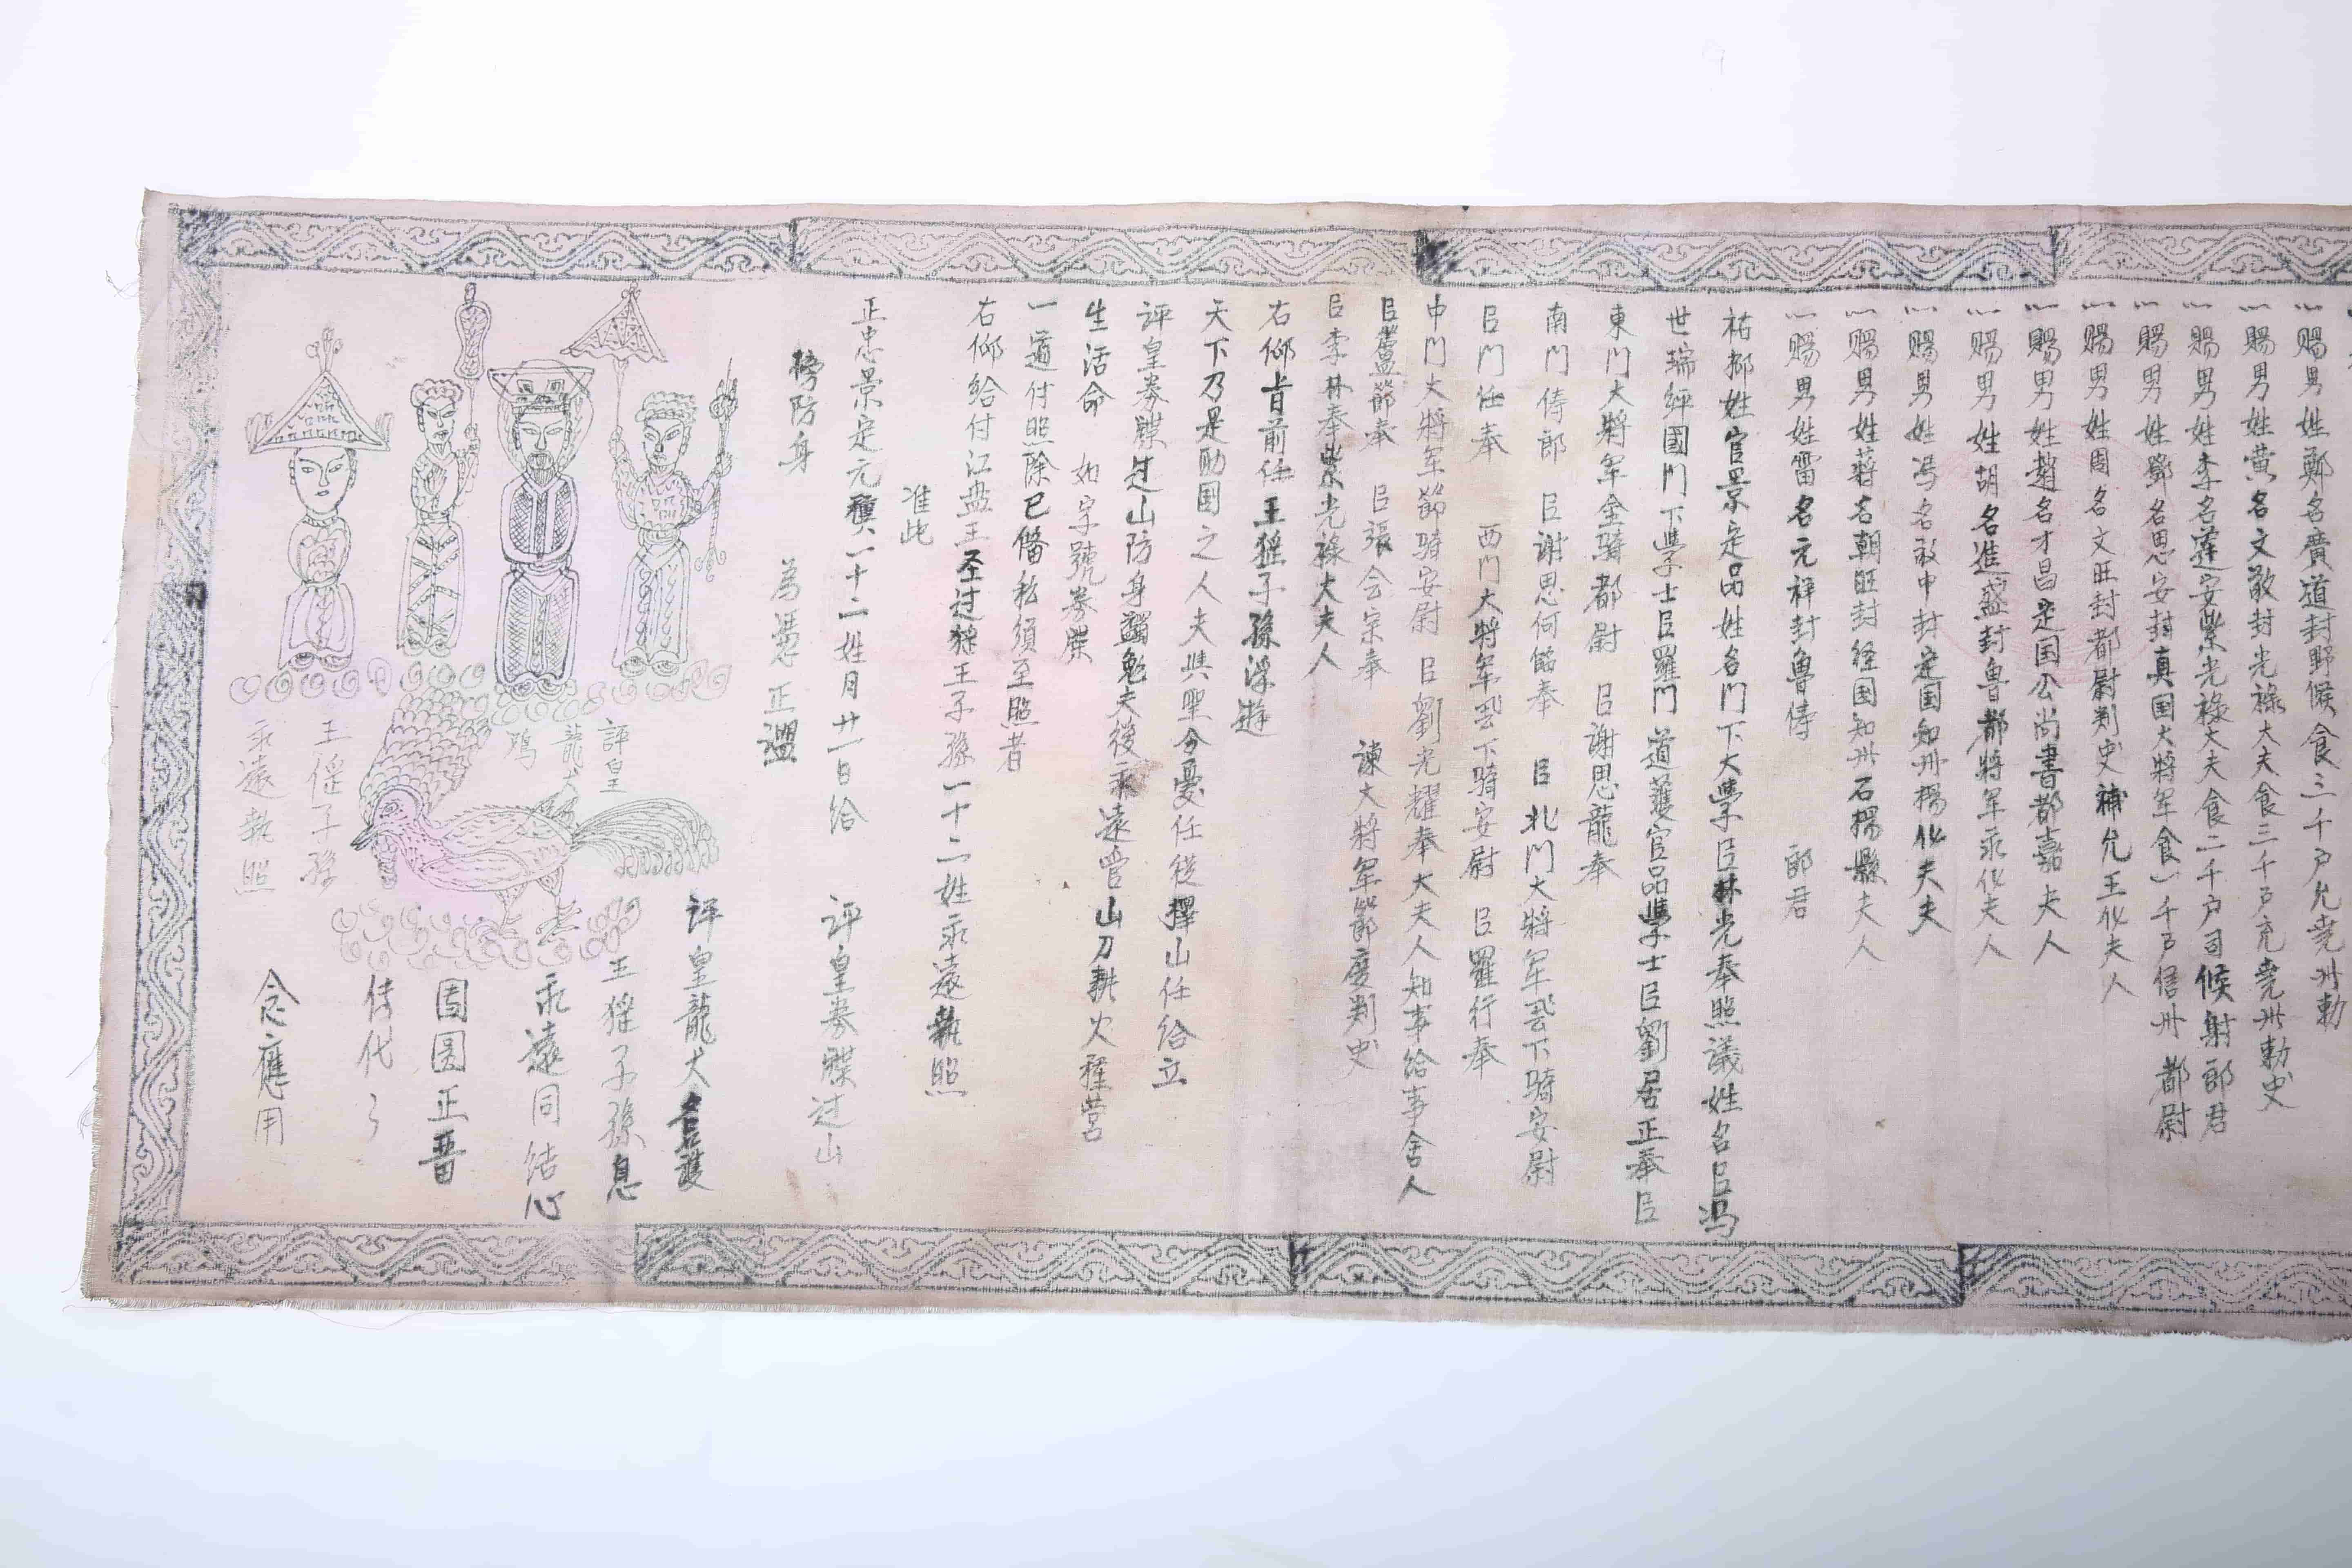 賜男姓鄭名廣道封野候食三千户允尭州勅
賜男姓黄名文敬封光禄大夫食三千户充尭州勅史
賜男姓李名莲安紫光禄大夫食二千户司候射郎君
賜男姓鄧名思安封真国大将军食一千户信州都尉
賜男姓周名文旺封都尉判史補允王化夫人
賜男姓趙名才昌定国公尚書都嘉夫人
賜男姓胡名進盛封魯都将军承化夫人
賜男姓冯名敢中封定国知州楊化夫夫
賜男姓蒋名朝旺封径国知州石楊縣夫人
賜男姓雷名元祥封魯侍 郎君
祐都姓官景定品姓名門下大學臣林光奉照議姓名臣冯
世瑞評國門下學士臣羅門道護官品學士臣劉居正奉臣
東門大將军金騎都尉 臣謝思龍奉
南門侍郎 臣謝思何節奉 臣北門大將军 下騎安尉
臣門任奉 西門大將军 下騎安尉 臣羅行奉
中門大將军節騎安尉 臣劉光耀奉大夫人知事给事舍人
臣蘆節奉 臣張会宗奉 諫大將军節度判史
臣李林奉紫光禄大夫人
右仰旨前任王猺子孫浮遊
天下乃是助国之人夫與聖分憂任從擇山任给立
評皇券牒过山防身蠲免夫後永遠管山刀耕火種营
生活命 如字號券牒
一道付照除已備私須至照者
右仰给付江盘王圣过猺王子孫一十二姓永遠執照
准此
正忠景定元 一十二姓月廿一日给 評皇券牒过山
榜防身 為憑正
評皇龍犬名護
王猺子孫息
永遠同结心
团圆正晋
传代了
念應用
評皇
龍犬
鸡
王傜子孫
永遠執照